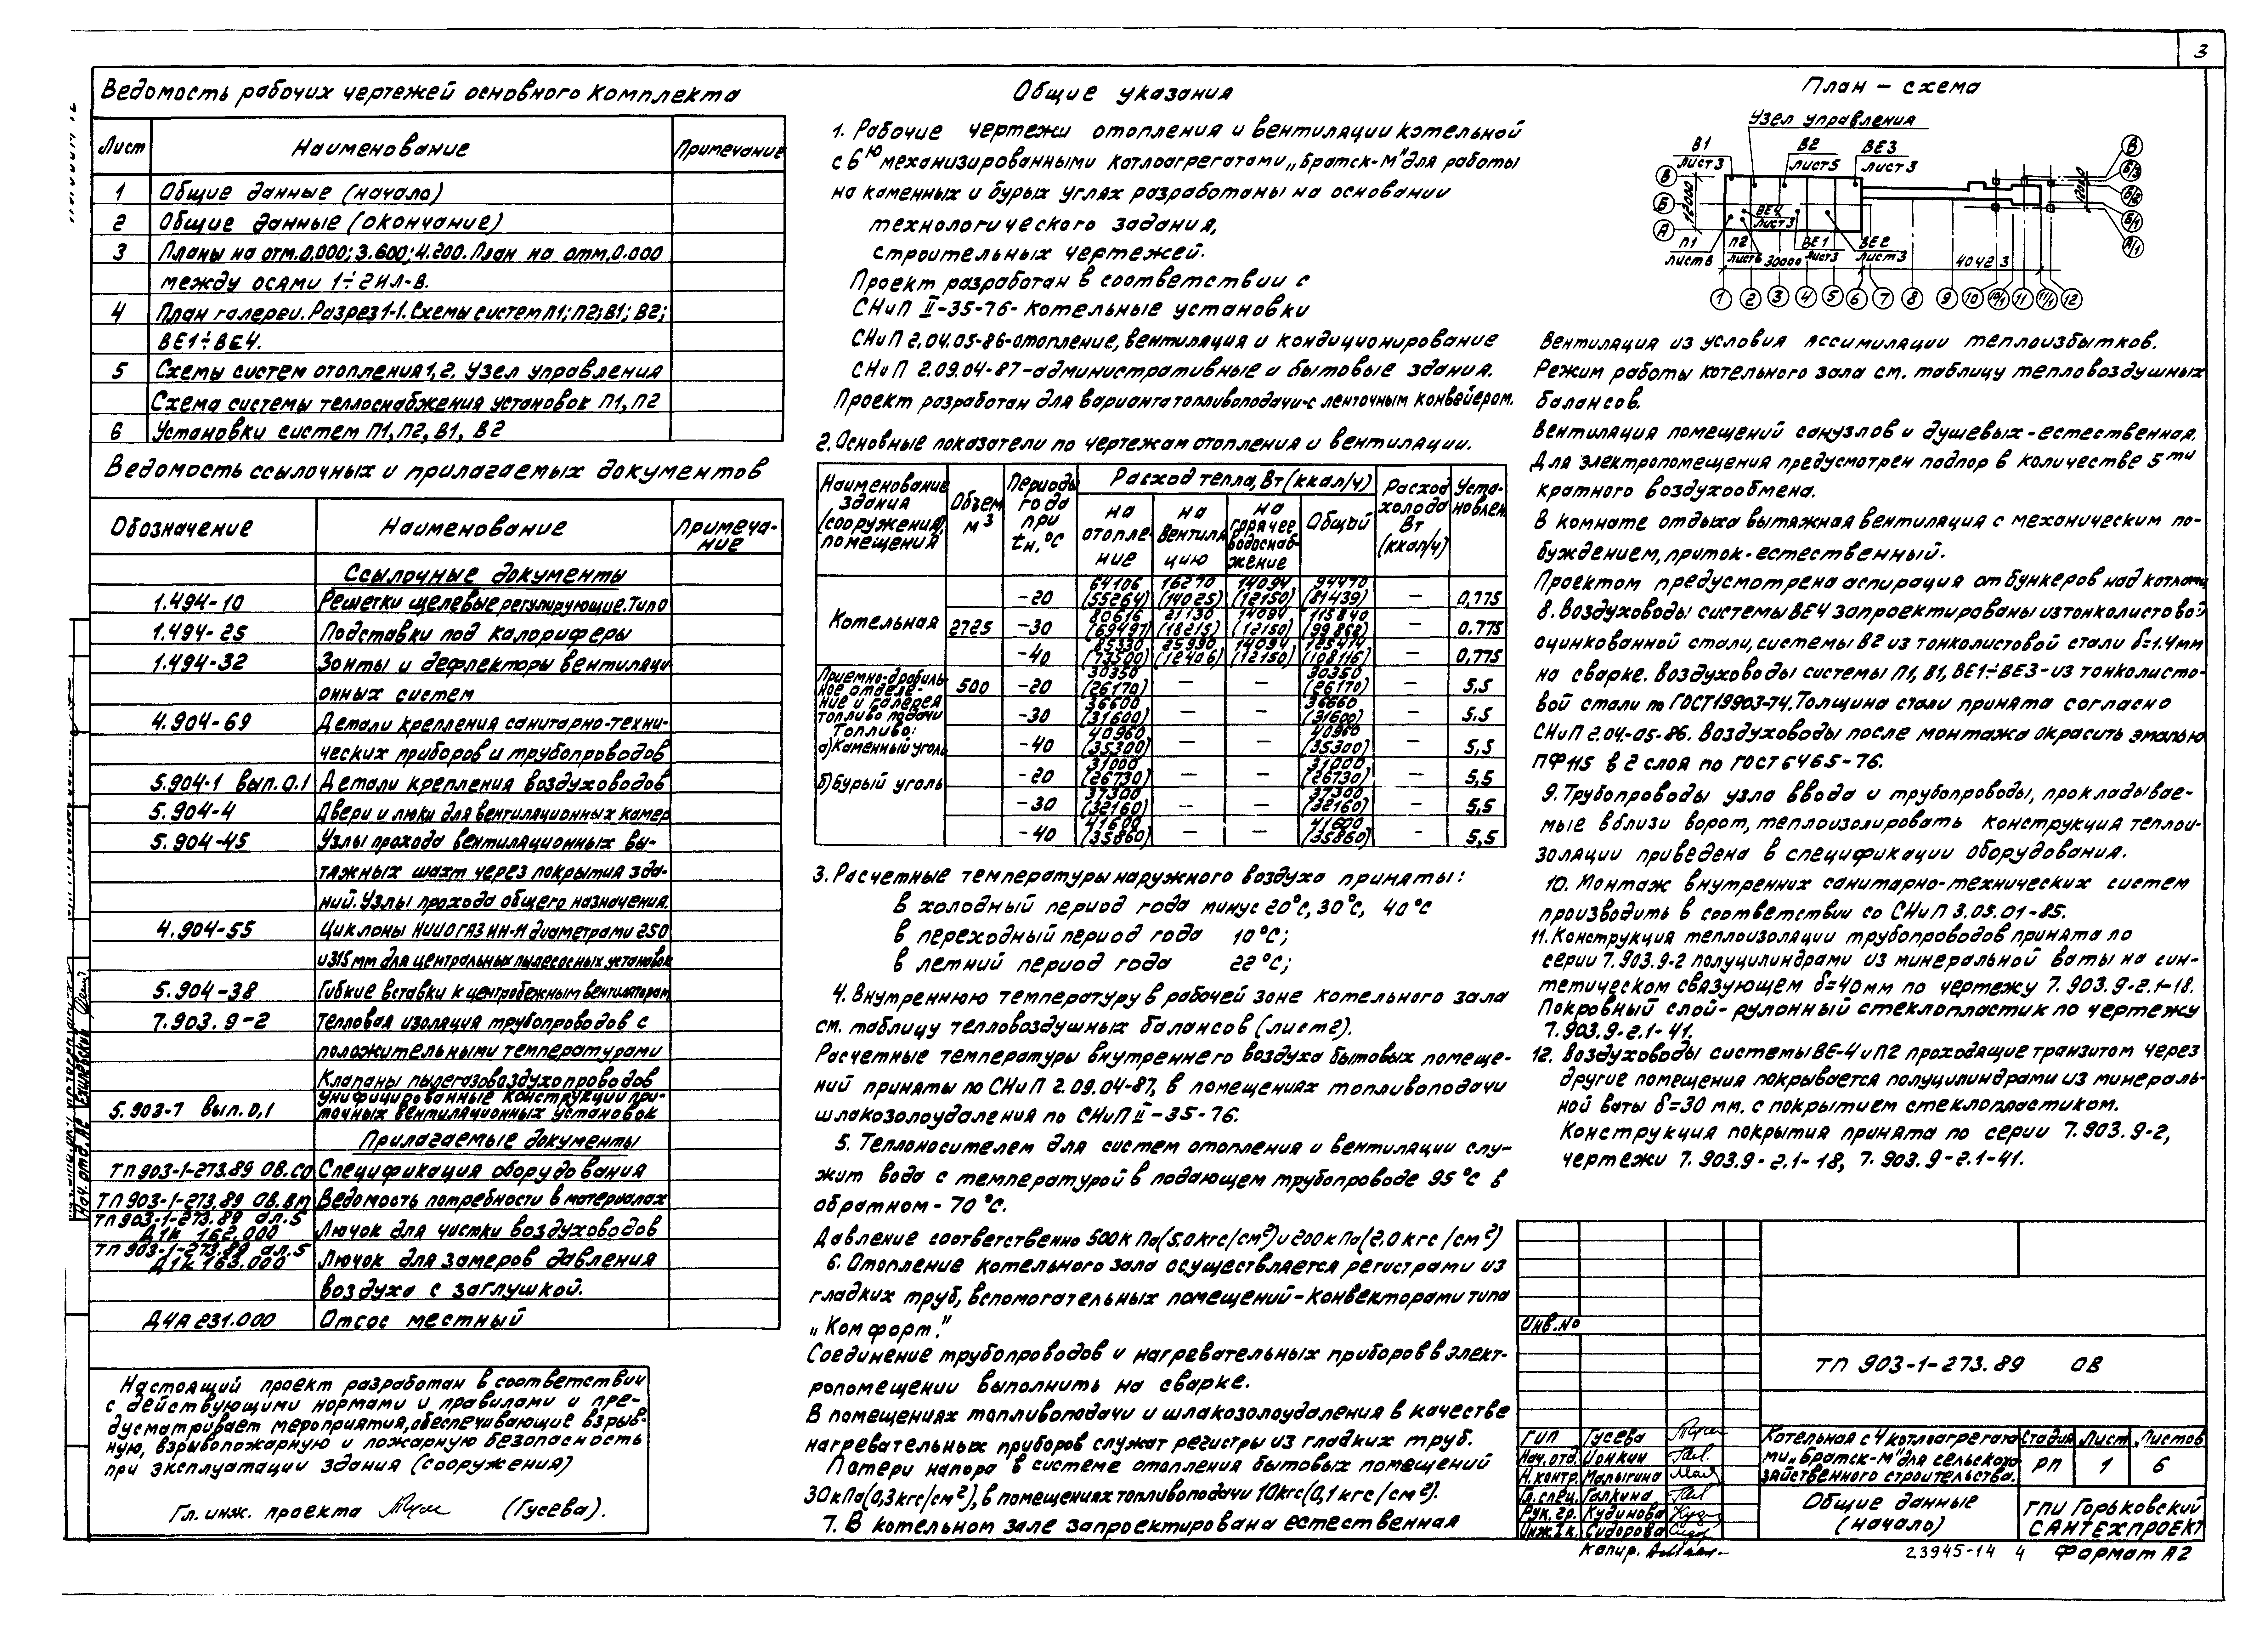 3
Ведомость рабочих чертежей основного комплекта
Лист Наименование Примечание
1 Общие данные (начало)
2 Общие данные (окончание)
3 Планы на отм.0,000; 3.600; 4.200. План на отм.0.000
между осями 1÷2 и Л-В.
4 План галереи. Разрез 1-1. Схемы систем П1; П2; В1; В2;
ВЕ1÷ВЕ4.
5 Схемы систем отопления 1, 2. Узел управления
Схема системы теплоснабжения установок П1, П2
6 Установки систем П1, П2, В1, В2
Ведомость ссылочных и прилагаемых документов
Обозначение Наименование Примеча-
ние
Ссылочные документы
1.494-10 Решетки щелевые регулирующие. Тип
1.494-25 Подставки под калориферы
1.494-32 Зонты и дефлекторы вентиляци
онных систем
4.904-69 Детали крепления санитарно-техни-
ческих приборов и трубопроводов
5.904-1 вып.0.1 Детали крепления воздуховодов
5.904-4 Двери и люки для вентиляционных камер
5.904-45 Узлы прохода вентиляционных вы-
тяжных шахт через покрытия зда-
ний. Узлы прохода общего назначения.
4.904-55 Циклоны НИИОГАЗ ЦН-11 диаметрами 250
и 315 мм для центральных пылесосных установок
5.904-38 Гибкие вставки к центробежным вентиляторам
7.903.9-2 Тепловая изоляция трубопроводов с
положительными температурами
Клапаны пылегазовоздухопроводов
5.903-7 вып.0,1 Унифицированные конструкции при-
точных вентиляционных установок
Прилагаемые документы
ТП 903-1-273.89 ОВ.СО Спецификация оборудования
ТП 903-1-273.89 ОВ.ВМ Ведомость потребности в материалах
ТП 903-1-273.89 ал.5
Д1К 162.000 Лючок для чистки воздуховодов
ТП 903-1-273.89 ал.5
Д1К 163.000 Лючок для замеров давления
воздуха с заглушкой.
Д4А 231.000 Отсос местный
Настоящий проект разработан в соответствии
с действующими нормами и правилами и пре-
дусматривает мероприятия, обеспечивающие взрыв-
ную, взрывопожарную и пожарную безопасность
при эксплуатации здания (сооружения)
Гл. инж. проекта (Гусева).
Нач. отд. АС
Общие указания
1. Рабочие чертежи отопления и вентиляции котельной
с 6ю механизированными котлоагрегатами „Братск-М" для работы
на каменных и бурых углях разработаны на основании
технологического задания,
строительных чертежей.
Проект разработан в соответствии с
СНиП II-35-76- Котельные установки
СНиП 2.04.05-86-отопление, вентиляция и кондиционирование
СНиП 2.09.04-87-административные и бытовые здания.
Проект разработан для варианта топливоподачи-с ленточным конвейером.
2. Основные показатели по чертежам отопления и вентиляции.
Наименование здания (сооружения) помещения Объем м3 Периоды года при tн, °С Расход тепла, Вт (ккал/ч) Расход холода Вт (ккал/ч) Уста- новлен.
на отопле- ние на вентиля цию на горячее водоснаб- жение Общий
Котельная 2725 -20 64106 (55264) 16270 (14025) 14094 (12150) 94470 (81439) — 0,775
-30 80616 (69497) 21130 (18215) 14094 (12150) 115840 (99862) — 0.775
-40 85330 (73500) 25990 (12406) 14094 (12150) 125414 (108116) — 0,775
Приемно-дробиль-
ное отделе-
ние и галерея
топливо подачи
Топливо:
а) Каменный уголь 500 -20 30350 (26170) — — 30350 (26170) — 5.5
-30 36600 (31600) — — 36660 (31600) — 5.5
-40 40960 (35300) — — 40960 (35300) — 5,5
б) Бурый уголь -20 31000 (26730) — — 31000 (26730) — 5,5
-30 37300 (32160) -- — 37300 (32160) — 5,5
-40 41600 (35860) — — 41600 (35860) - 5,5
3. Расчетные температуры наружного воздуха приняты:
в холодный период года минус 20°С, 30°С, 40°С
в переходный период года 10°С;
в летний период года 22°С;
4. Внутреннюю температуру в рабочей зоне котельного зала
см. таблицу тепловоздушных балансов (лист 2).
Расчетные температуры внутреннего воздуха бытовых помеще-
ний приняты по СНиП 2.09.04-87, в помещениях топливоподачи
шлакозолоудаления по СНиП II-35-76.
5. Теплоносителем для систем отопления и вентиляции слу-
жит вода с температурой в подающем трубопроводе 95°С в
обратном - 70°С.
Давление соответственно 500 кПа (5.0 кгс/см2) и 200 кПа (2,0 кгс/см2)
6. Отопление котельного зала осуществляется регистрами из
гладких труб, вспомогательных помещений-Конвекторами типа
„Комфорт."
Соединение трубопроводов и нагревательных приборов в элект-
ропомещении выполнить на сварке.
В помещениях топливоподачи и шлакозолоудаления в качестве
нагревательных приборов служат регистры из гладких труб.
Потери напора в системе отопления бытовых помещений
30 кПа (0,3 кгс/см2), в помещениях топливоподачи 10 кгс (0,1 кгс/см2).
7. В котельном зале запроектирована естественная
План - схема
Узел управления
В1 В2 ВЕ3
лист 3 лист 5 лист 3
В Б А 12000
ВЕ4
лист 3
П1 П2 ВЕ1 ВЕ2
лист 6 лист 6 30000 лист 3 лист 3 40423
В Б/3 Б/2 Б/1 А/1 12000
1 2 3 4 5 6 7 8 9 10 10/1 11 11/1 12
Вентиляция из условия ассимиляции теплоизбытков.
Режим работы котельного зала см. таблицу тепловоздушных
балансов.
Вентиляция помещений санузлов и душевых-естественная.
Для электропомещения предусмотрен подпор в количестве 5ти
кратного воздухообмена.
В комнате отдыха вытяжная вентиляция с механическим по-
буждением, приток-естественный.
Проектом предусмотрена аспирация от бункеров над котлами
8. Воздуховоды системы ВЕ4 запроектированы из тонколистовой
оцинкованной стали, системы В2 из тонколистовой стали δ=1.4мм
на сварке. Воздуховоды системы П1, В1, ВЕ1÷ВЕ3-из тонколисто-
вой стали по ГОСТ 19903-74. Толщина стали принята согласно
СНиП 2.04.-05-86. Воздуховоды после монтажа окрасить эмалью
ПФ 115 в 2 слоя по ГОСТ 6465-76.
9. Трубопроводы узла ввода и трубопроводы, прокладывае-
мые вблизи ворот, теплоизолировать конструкция теплои-
золяции приведена в спецификации оборудования.
10. Монтаж внутренних санитарно-технических систем
производить в соответствии со СНиП 3.05.01-85.
11. Конструкция теплоизоляции трубопроводов принята по
серии 7.903.9-2 полуцилиндрами из минеральной ваты на син-
тетическом связующем δ=40мм по чертежу 7.903.9-2.1-18.
Покровный слой-рулонный стеклопластик по чертежу
7.903.9-2.1-41.
12. Воздуховоды системы ВЕ-4 и П2 проходящие транзитом через
другие помещения покрывается полуцилиндрами из минераль-
ной ваты δ=30 мм. с покрытием стеклопластиком.
Конструкция покрытия принята по серии 7.903.9-2,
чертежи 7.903.9-2.1-18, 7.903.9-2.1-41.
Инв.№
ТП 903-1-273.89 ОВ
ГИП Гусева
Нач.отд. Ионкин
Н.контр. Малыгина
Гл.спец. Галкина
Рук.гр. Кудинова
Инж.Iк. Сидорова
Котельная с 4 котлоагрегата
ми „Братск-М" для сельскохо
зяйственного строительства.
Стадия Лист Листов
РП 1 6
Общие данные
(начало)
ГПИ Горьковский
САНТЕХПРОЕКТ
Копир.
23945-14 4 Формат А2